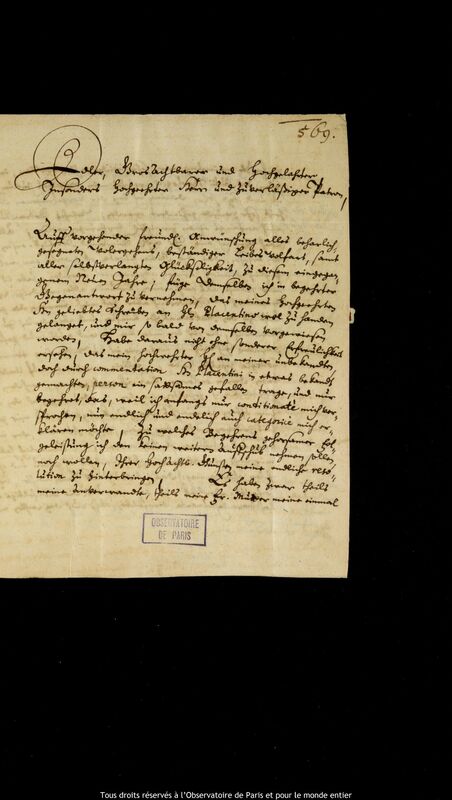 569.
Edler, GroßAchtbarer und Hochgelahrter
Insonders Hochgeehrter Herr und Zuverläßiger Patron,
Auff vorgehender freundl. Anwünschung alles beharlich
gesegneten Wolergehens, beständiger Leibes wolfart, samt
aller selbstverlangten Glückseligkeit, zu diesem eingegan-
genen Neuen Jahre, füge demselben ich in begehrter
Gegenantwort zu vernehmen, das meines Hochgeehrten
Hn geliebtes Schreiben an Hn Placentino wol zu handen
gelanget, und mir so bald von demselben vorgewiesen
worden, Habe daraus nicht ohne sonderer Erfreulichkeit
ersehen, das mein Hochgeehrter H. an meiner unbekandten,
doch durch commendation Hn Placentini in etwas bekandt
gemachten, person ein sattsames gefallen trage, und nur
begehret, das, weil ich anfangs nur conditionate mich ver-
sprochen, nur endlich und endlich auch categoricè mich er-
klären möchte, Zu welches Begehrens gehorsamer Fol-
geleistung ich den keinen weitern Auffschub nehmen sollen
noch wollen, Ihrer Hochachtb. Gunsten meine endliche reso-
lution zu hinterbringen. Es haben zwar theils
meine Anverwandte, theils meine Fr. Mutter meine einmal
OBSERVATOIRE
DE PARIS
Tous droits réservés à l'Observatoire de Paris et pour le monde entier